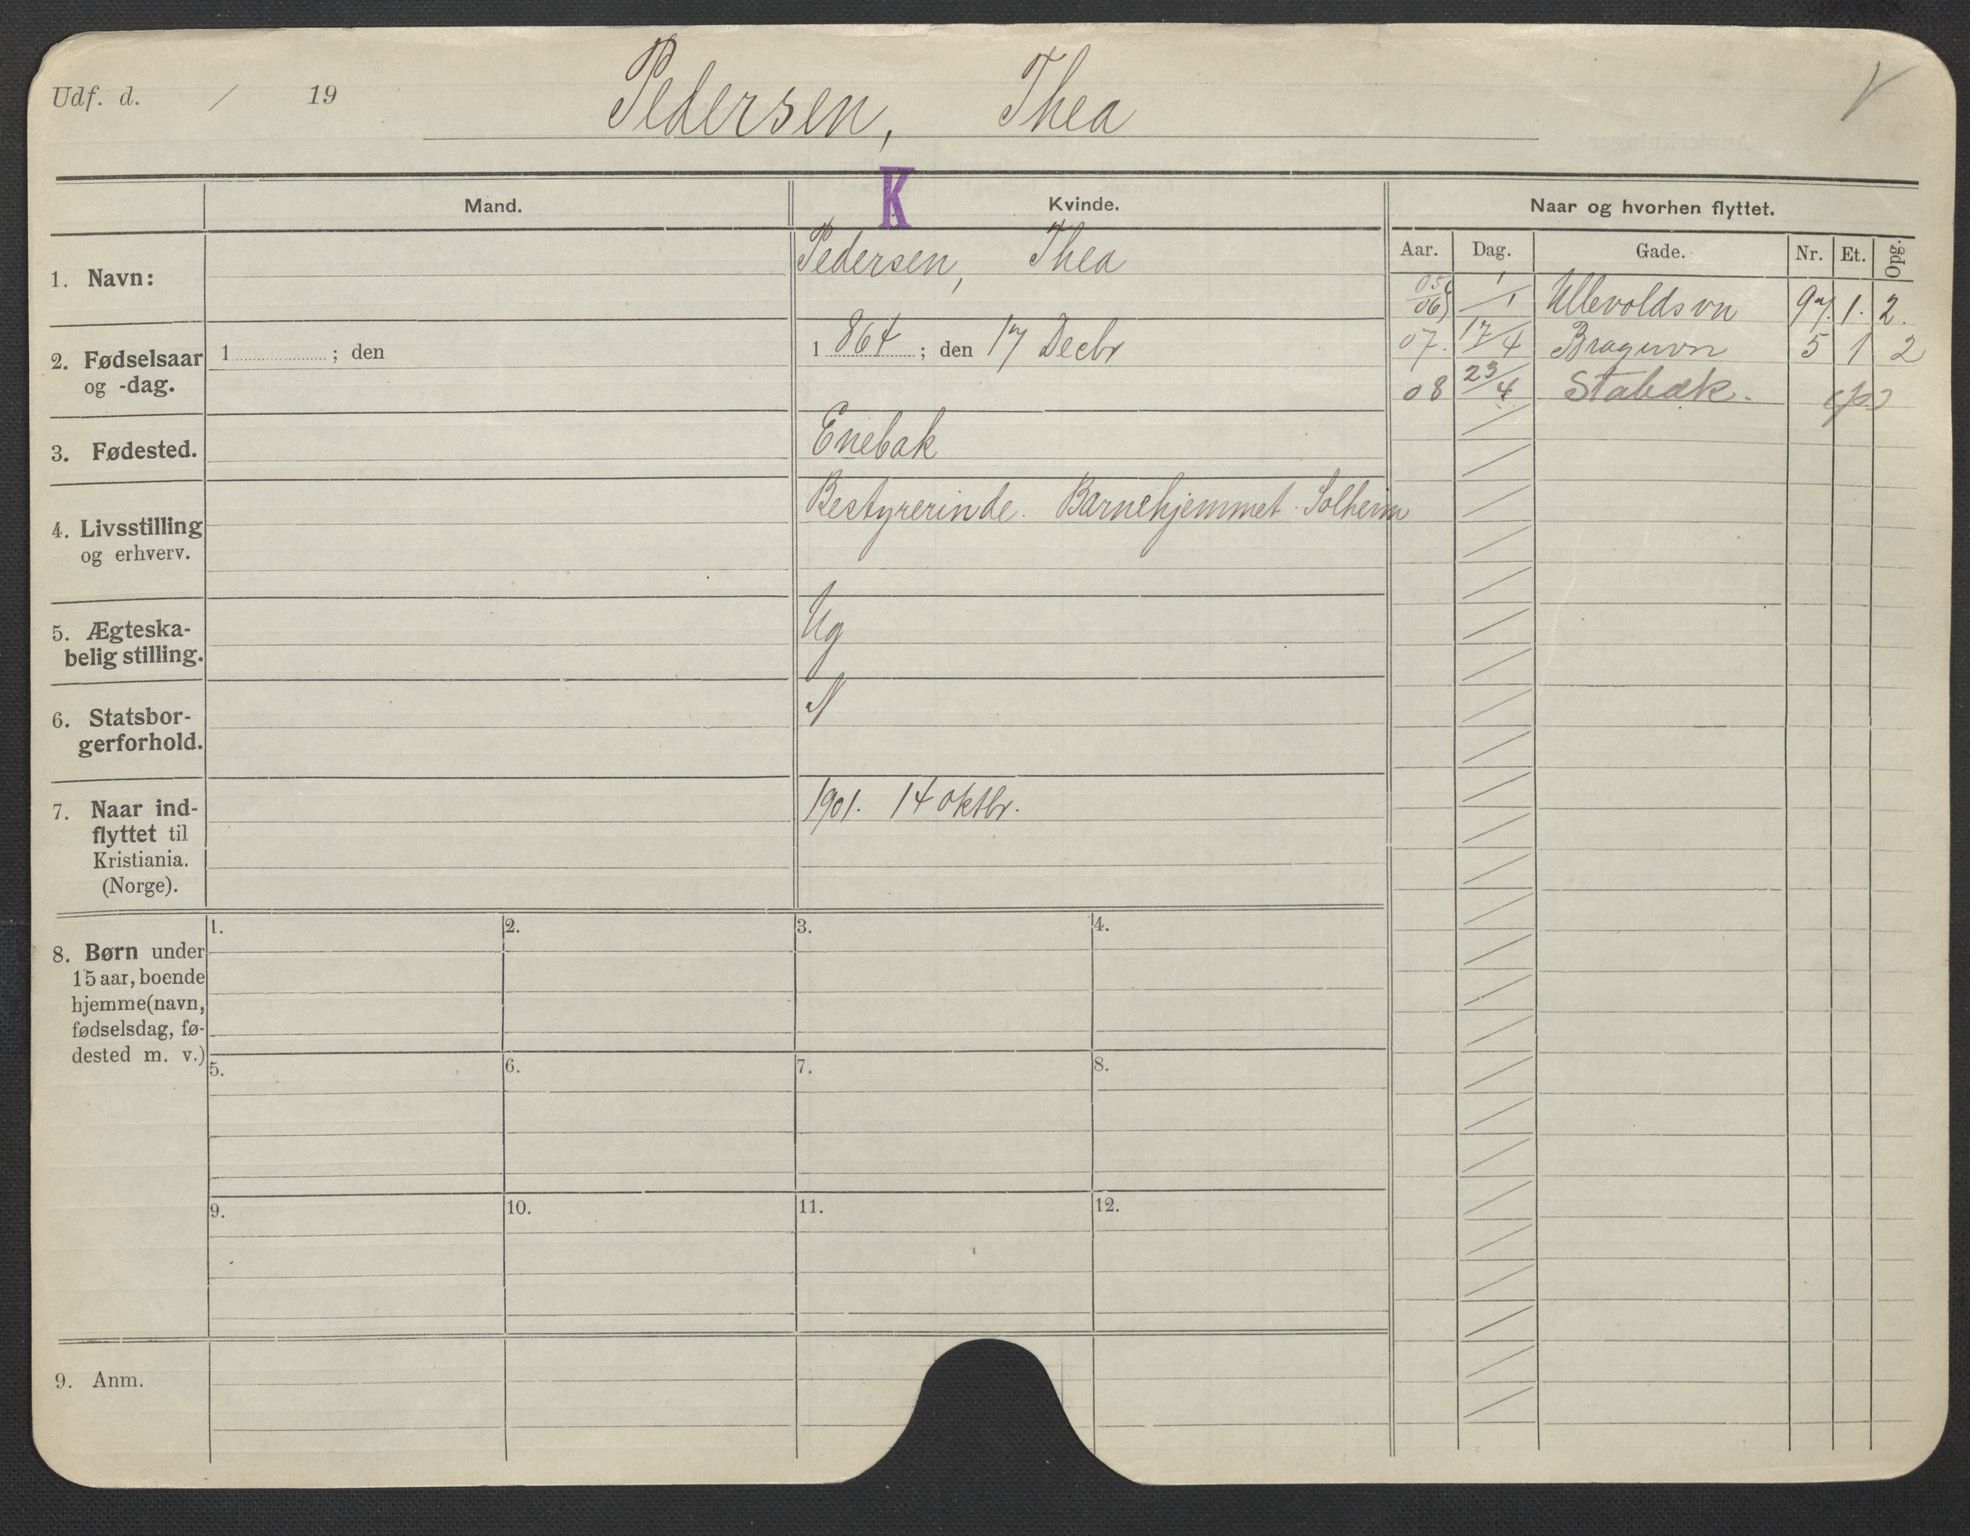 Udf. d. / 19
Pedersen, Thea
K
Mand.
Kvinde.
Naar og hvorhen flyttet.
Aar. Dag. Gade. Nr. Et. Opg.
05/06 1/1 Ullevoldsvn 97. 1. 2.
07. 17/4 Bragevn 5 1 2
08 23/4 Stabæk.
1. Navn: Pedersen, Thea
2. Fødselsaar og -dag.
1 ; den
1 864 ; den 17 Decbr
3. Fødested. Enebak
4. Livsstilling og erhverv.
Bestyrerinde. Barnehjemmet Solheim
5. Ægteska-
belig stilling.
Ug
6. Statsbor-
gerforhold.
N
7. Naar ind-
flyttet til
Kristiania.
(Norge).
1901. 14 oktbr.
8. Børn under
15 aar, boende
hjemme (navn,
fødselsdag, fø-
dested m. v.)
1. 2. 3. 4.
5. 6. 7. 8.
9. 10. 11. 12.
9. Anm.